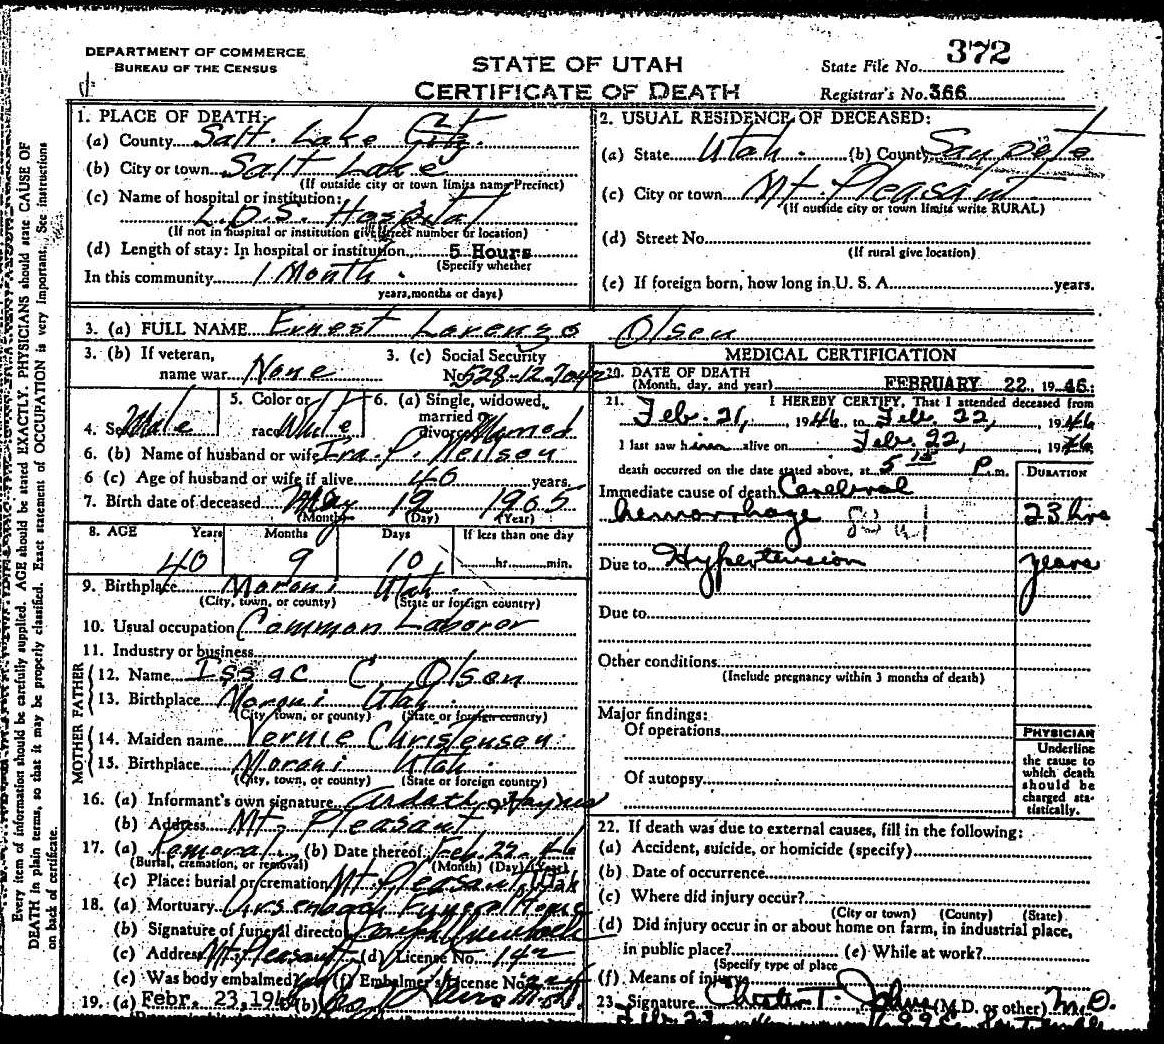 DEPARTMENT OF COMMERCE
BUREAU OF THE CENSUS
STATE OF UTAH
CERTIFICATE OF DEATH
State File No. 372
Registrar's No. 366
Every item of information should be carefully supplied. AGE should be stated EXACTLY. PHYSICIANS should state CAUSE OF
DEATH in plain terms, so that it may be properly classified. Exact statement of OCCUPATION is very important. See instructions
on back of certificate.
1. PLACE OF DEATH:
(a) County Salt Lake
(b) City or town Salt Lake
(If outside city or town limits name Precinct)
(c) Name of hospital or institution:
L.D.S. Hospital
(If not in hospital or institution give street number or location)
(d) Length of stay: In hospital or institution 5 Hours
(Specify whether
In this community 1 Month.
years, months or days)
2. USUAL RESIDENCE OF DECEASED:
(a) State Utah. (b) County Sanpete
(c) City or town Mt. Pleasant
(If outside city or town limits write RURAL)
(d) Street No.
(If rural give location)
(e) If foreign born, how long in U. S. A. years.
3. (a) FULL NAME Ernest Lorenzo Olsen
3. (b) If veteran, name war None
3. (c) Social Security No. 528-12-7042
4. Sex Male
5. Color or race White
6. (a) Single, widowed, married or divorced Married
6. (b) Name of husband or wife Ira P. Neilsen
6 (c) Age of husband or wife if alive 40 years.
7. Birth date of deceased May 12 1905
(Month) (Day) (Year)
8. AGE Years Months Days If less than one day
40 9 10 hr. min.
9. Birthplace Moroni Utah.
(City, town, or county) (State or foreign country)
10. Usual occupation Common Laborer
11. Industry or business
FATHER
12. Name Issac C Olsen
13. Birthplace Moroni Utah.
(City town, or county) (State or foreign country)
MOTHER
14. Maiden name Vernie Christensen
15. Birthplace Moroni Utah.
(City, town, or county) (State or foreign country)
16. (a) Informant's own signature Ardath Haynes
(b) Address Mt. Pleasant
17. (a) Removal (b) Date thereof Feb. 22-46
(Burial, cremation, or removal) (Month) (Day) (Year)
(c) Place: burial or cremation Mt Pleasant Utah
18. (a) Mortuary Ursenbach Funeral Home
(b) Signature of funeral director
(c) Address Mt Pleasant (d) License No. 142
(e) Was body embalmed? (f) Embalmer's License No.
19. (a) Febr. 23, 1946 (b)
MEDICAL CERTIFICATION
20. DATE OF DEATH
(Month, day, and year) FEBRUARY 22, 1946.
21. I HEREBY CERTIFY, That I attended deceased from
Feb. 21, 1946, to Feb. 22, 1946
I last saw him alive on Feb. 22, 1946
death occurred on the date stated above, at 5 15 P.m.
DURATION
Immediate cause of death Cerebral
hemorrhage 23 hrs
Due to Hypertension years
Due to
Other conditions
(Include pregnancy within 3 months of death)
Major findings:
Of operations
Of autopsy
PHYSICIAN
Underline
the cause to
which death
should be
charged sta-
tistically.
22. If death was due to external causes, fill in the following:
(a) Accident, suicide, or homicide (specify)
(b) Date of occurrence
(c) Where did injury occur?
(City or town) (County) (State)
(d) Did injury occur in or about home on farm, in industrial place,
in public place? (e) While at work?
(Specify type of place
(f) Means of injury
23. Signature Chester T. (M.D. or other) M.D.
Feb. 23